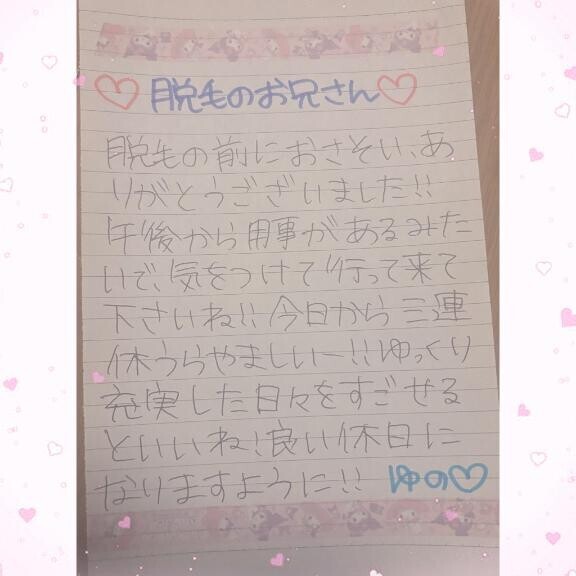 ♡脱毛のお兄さん♡
脱毛の前におさそい、あ
りがとうございました!!
午後から用事があるみた
いで、気をつけて行って来て
下さいね!!今日から三連
休うらやましいー!!ゆっくり
充実した日々をすごせる
といいね!良い休日に
なりますように!! ゆの♡